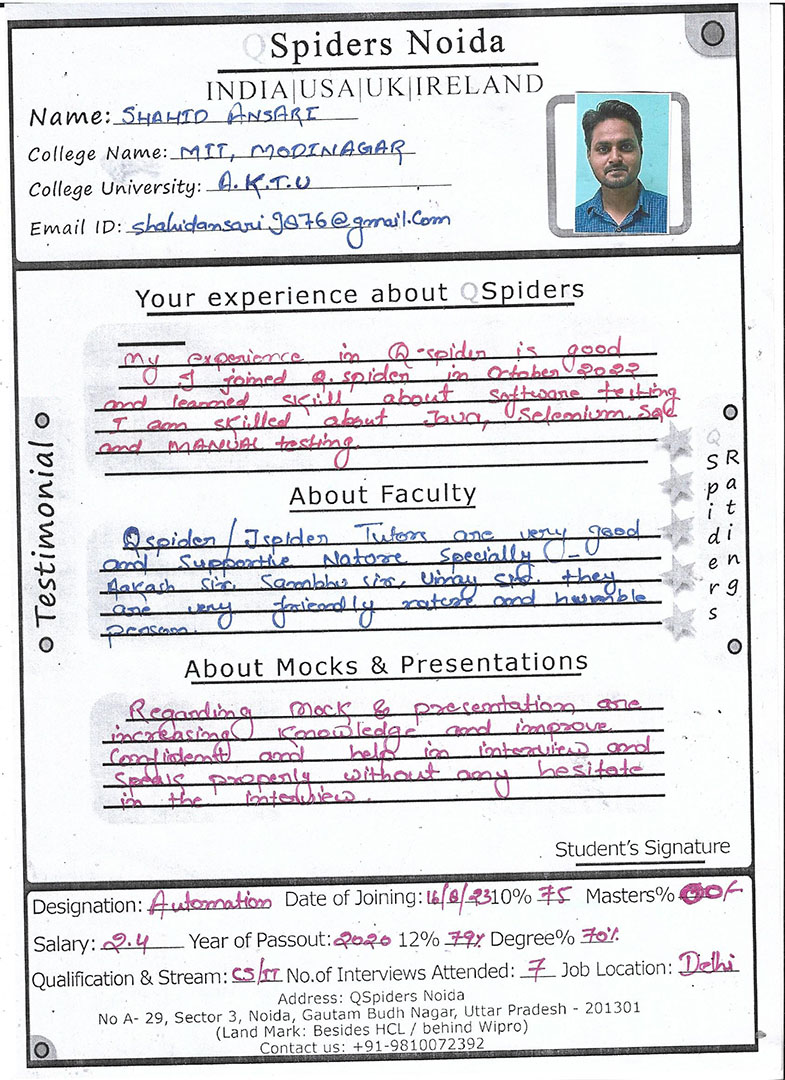 QSpiders Noida
INDIA|USA|UK|IRELAND
Name: SHAHID ANSARI
College Name: MIT, MODINAGAR
College University: A.K.T.U
Email ID: shahidansari9876@gmail.com
Your experience about QSpiders
My experience in Q-spider is good
I joined Q.spider in October 2022
and learned skill about software testing
I am skilled about Java, Selenium Sql
and MANUAL testing.
About Faculty
Qspider/Jspider Tutors are very good
and Supportive Nature Specially -
Aakash Sir, Sambhu Sir, Vinay Sir. they
are very friendly nature and humble
person.
About Mocks & Presentations
Regarding Mock & presentation are
increasing Knowledge and improve
Confident and help in interview and
speak properly without any hesitate
in the interview.
Student's Signature
Testimonial
QSpiders
Ratting
Designation: Automation Date of Joining: 16/8/23 10% 75 Masters%
Salary: 2.4 Year of Passout: 2020 12% 79% Degree% 70%
Qualification & Stream: CS/IT No.of Interviews Attended: 7 Job Location: Delhi
Address: QSpiders Noida
No A- 29, Sector 3, Noida, Gautam Budh Nagar, Uttar Pradesh - 201301
(Land Mark: Besides HCL / behind Wipro)
Contact us: +91-9810072392